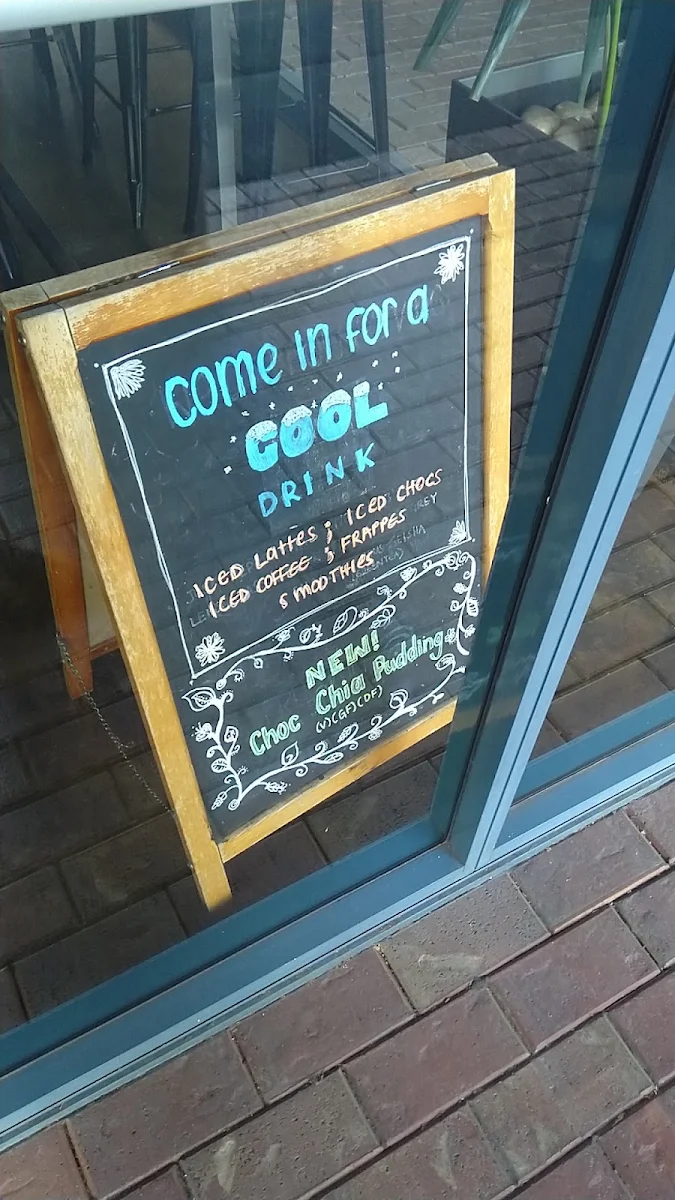 come in for a
COOL
DRINK
ICED LATTES ; ICED CHOCS
ICED COFFEE ; FRAPPES
SMOOTHIES
NEW!
Choc Chia Pudding
(V)(GF)(DF)